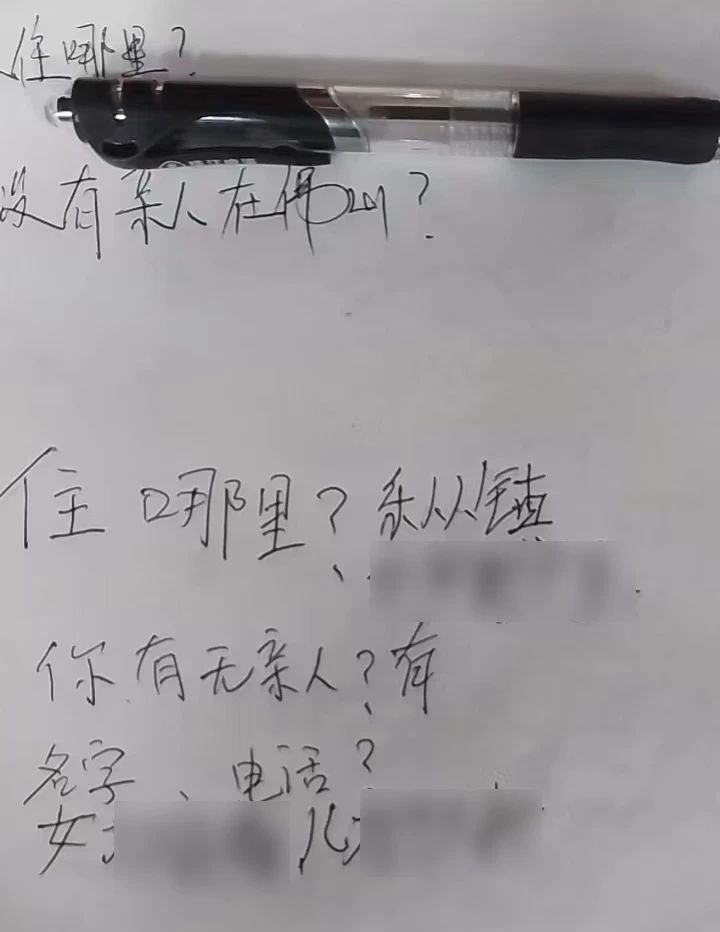 住哪里?
没有亲人在佛山?
住哪里?纵镇
你有无亲人?有
名字、电话?
女 儿